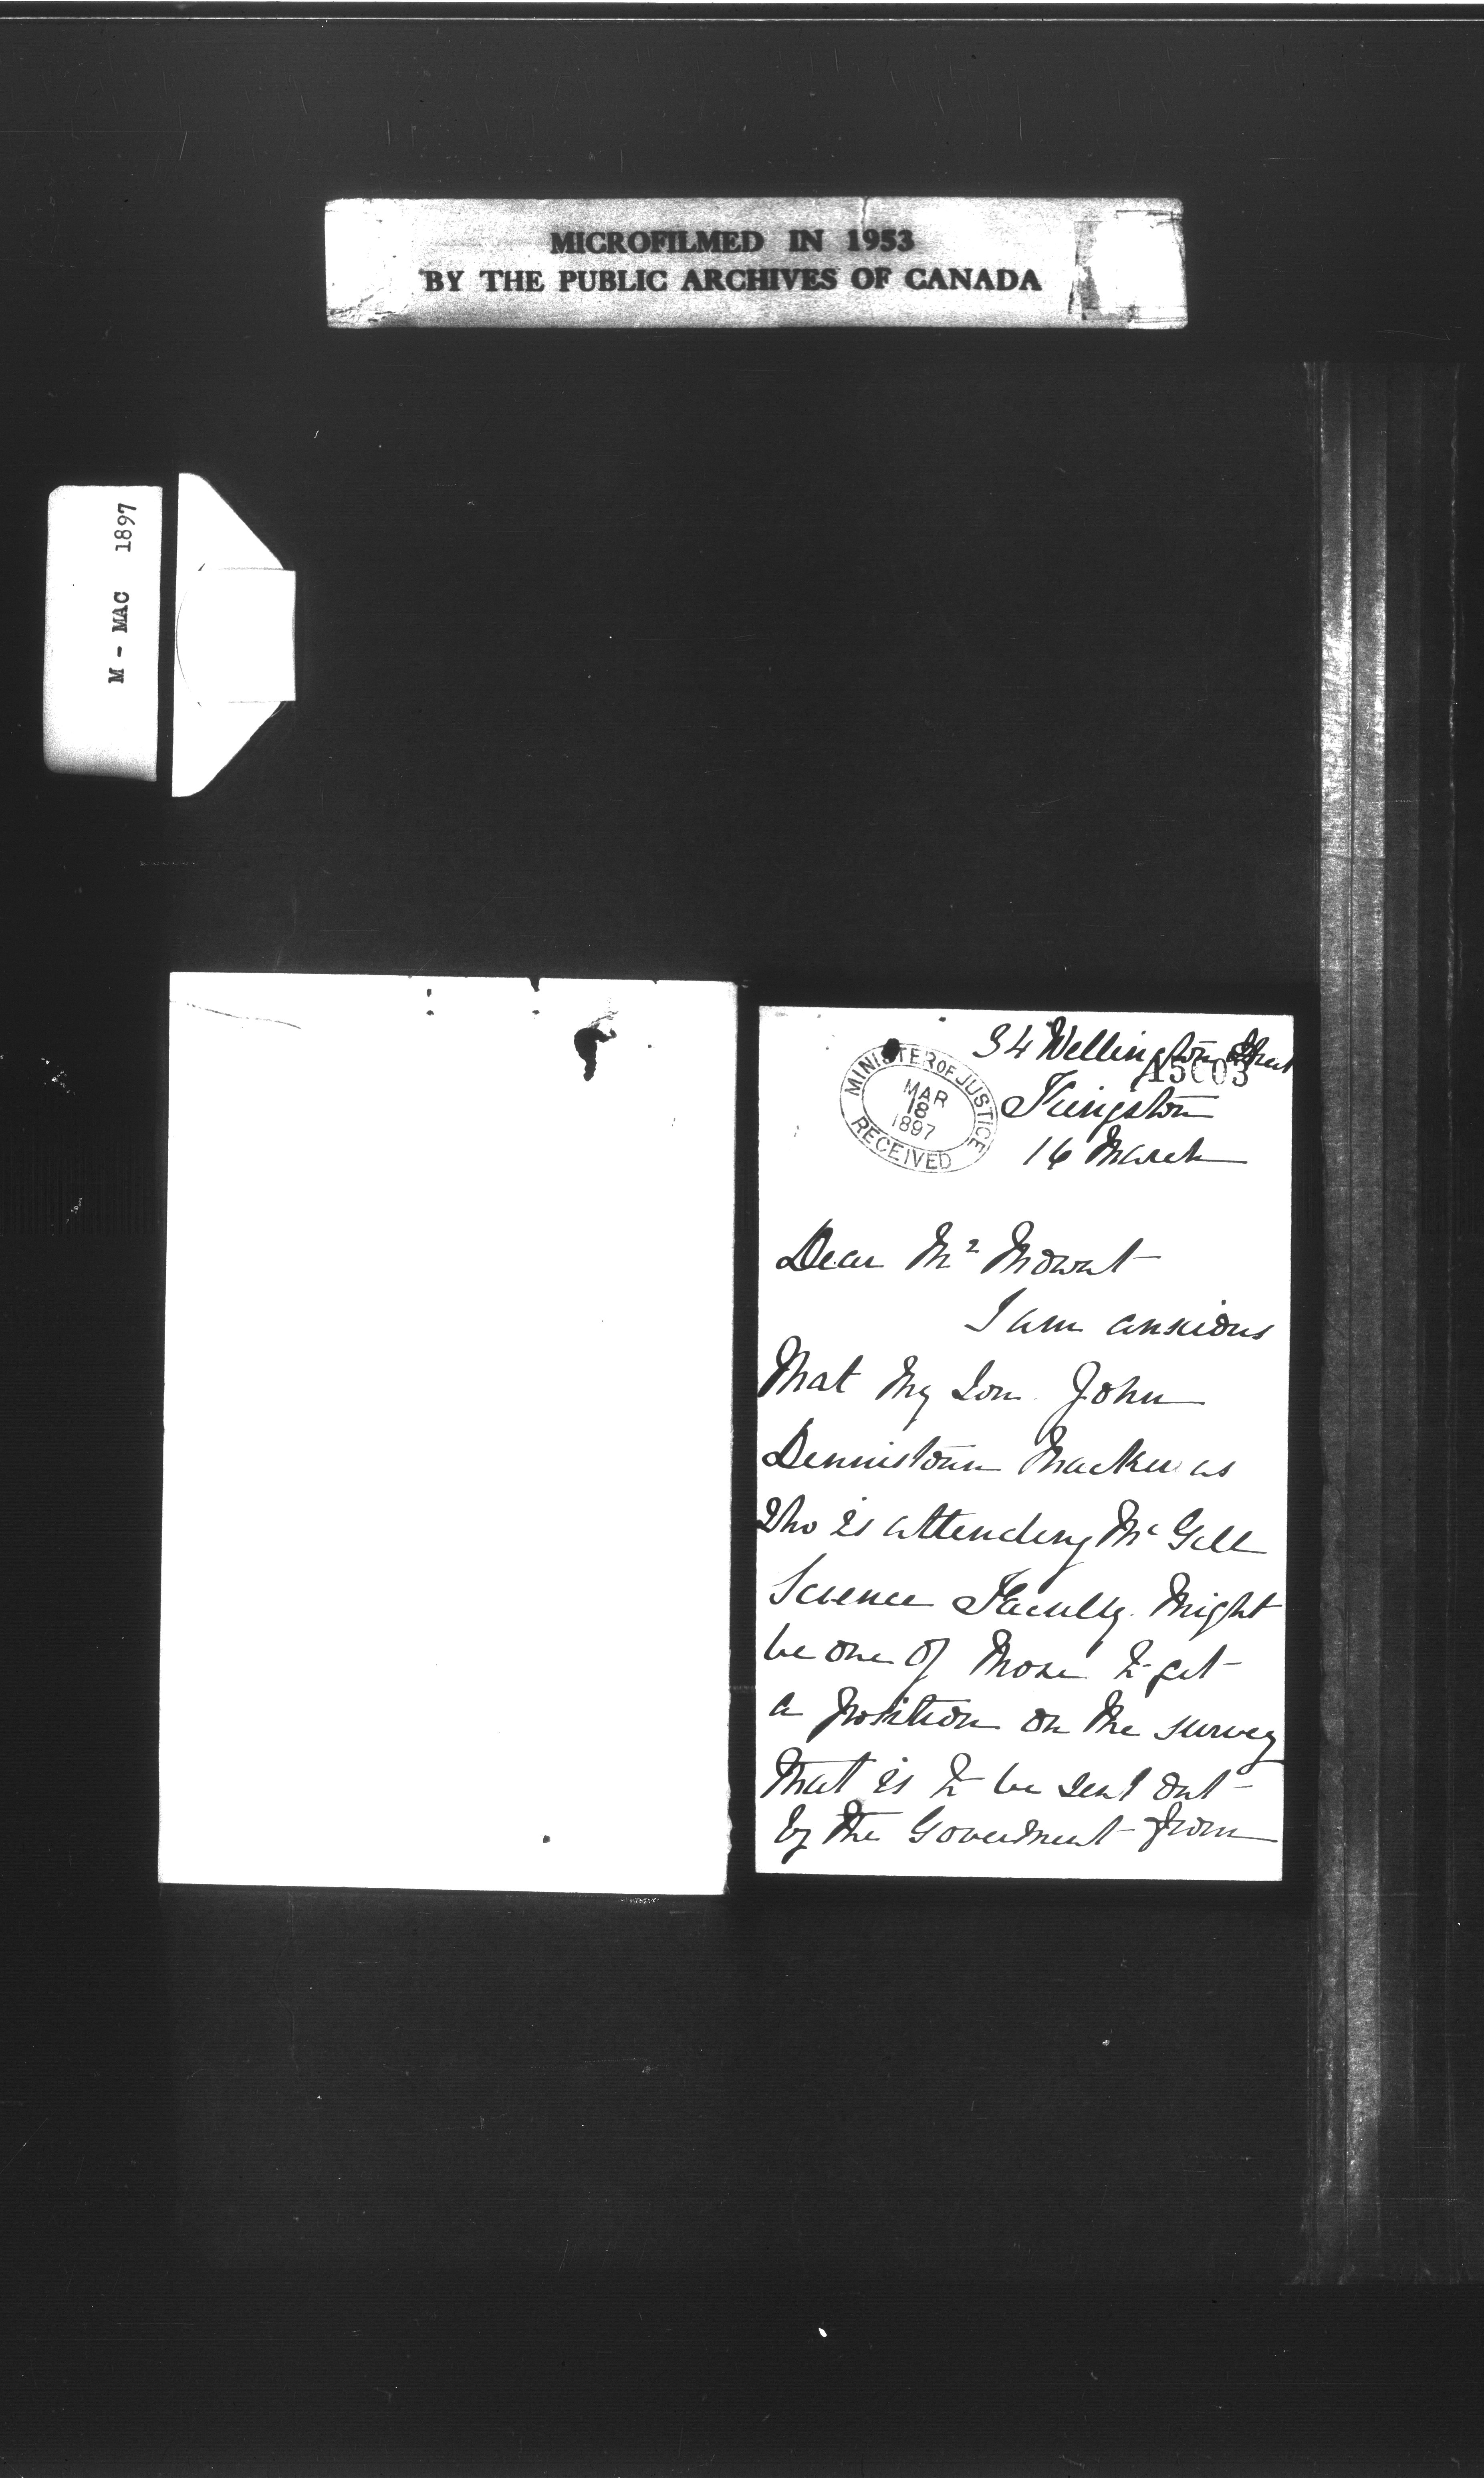 MICROFILMED IN 1953
BY THE PUBLIC ARCHIVES OF CANADA
M - MAC 1897
34 Wellington Street
A5C03
Kingston
16 March
MINISTER OF JUSTICE
MAR
18
1897
RECEIVED
Dear Mr Mowat
I am anxious
that my son John
Dennistoun
who is attending McGill
Science Faculty might
be one of those to get
a position on the survey
that is to be sent out
by the Government from